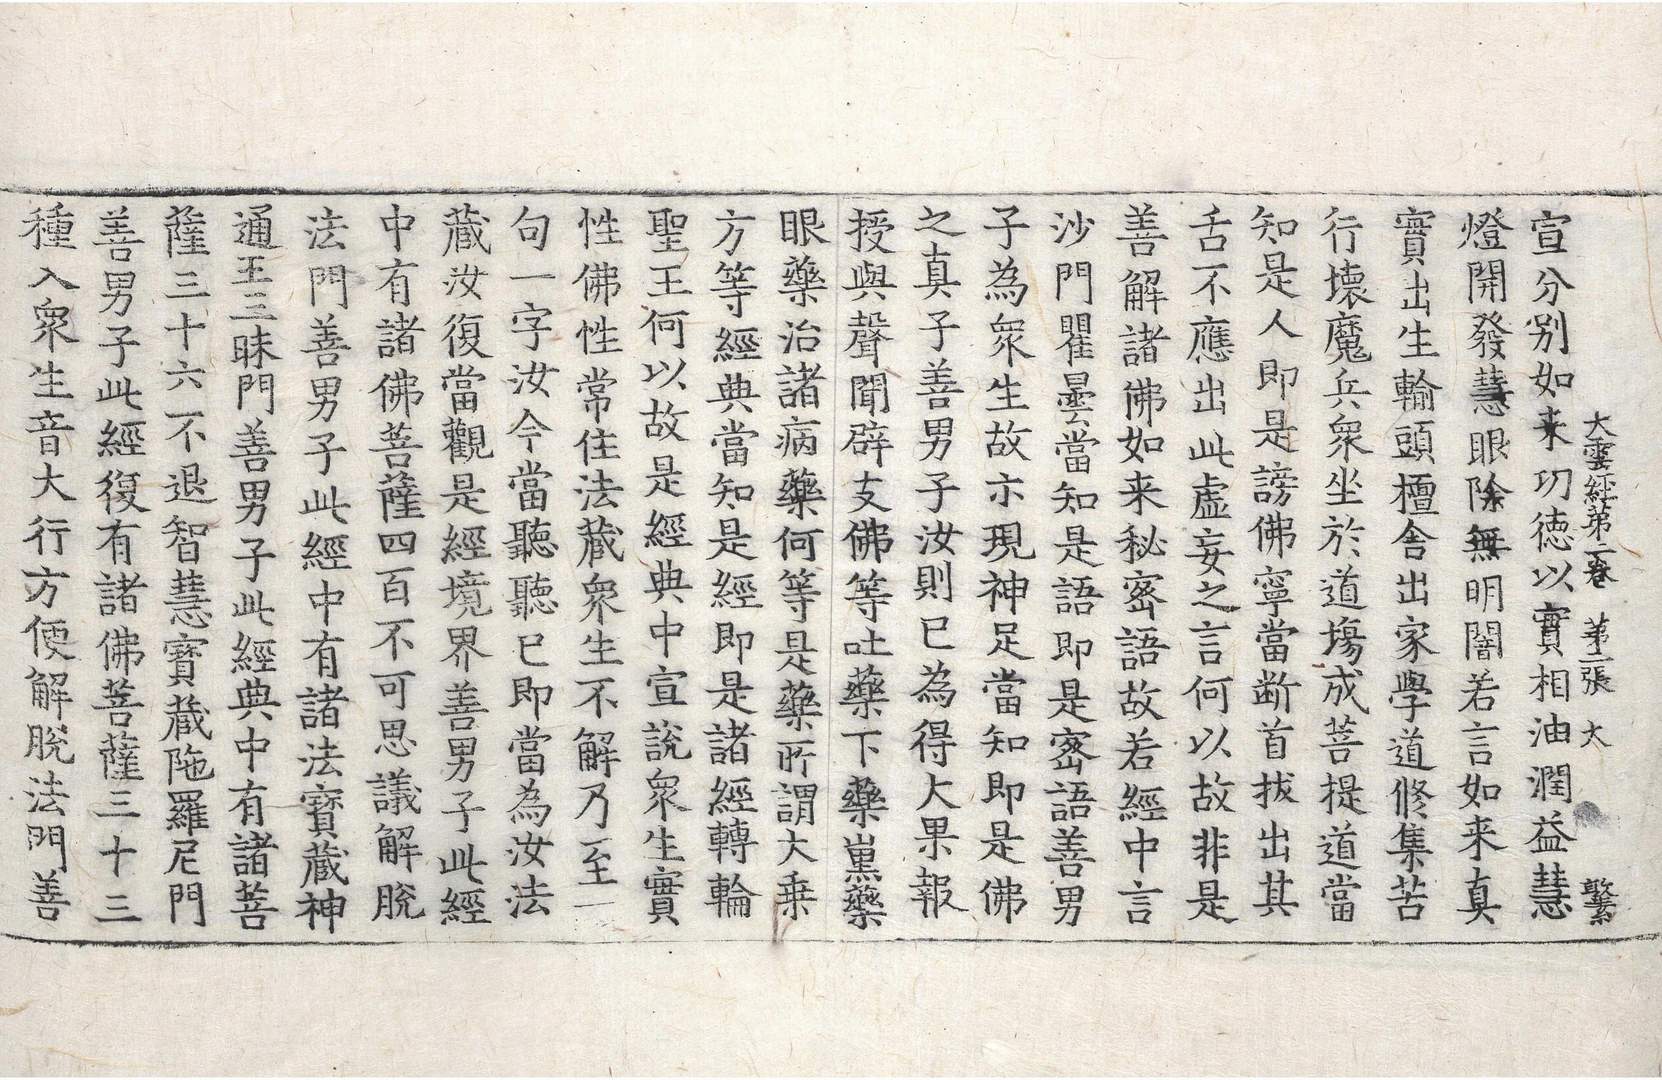 大雲經苐二卷 苐二張 大
宣分別如来功徳以實相油潤益慧
燈開發慧眼除無明闇若言如来真
實出生輸頭檀舍出家學道修集苦
行壞魔兵衆坐於道塲成菩提道當
知是人即是謗佛寧當断首拔出其
舌不應出此虛妄之言何以故非是
善解諸佛如来秘宻語故若經中言
沙門瞿曇當知是語即是宻語善男
子為衆生故示現神足當知即是佛
之真子善男子汝則已為得大果報
授與聲聞辟支佛等吐藥下藥熏藥
眼藥治諸病藥何等是藥所謂大乗
方等經典當知是經即是諸經轉輪
聖王何以故是經典中宣說衆生實
性佛性常住法藏衆生不解乃至一
句一字汝今當聽聽已即當為汝法
藏汝復當觀是經境界善男子此經
中有諸佛菩薩四百不可思議解脫
法門善男子此經中有諸法寶藏神
通王三昧門善男子此經典中有諸菩
薩三十六不退智慧寶藏陁羅尼門
善男子此經復有諸佛菩薩三十三
種入衆生音大行方便解脫法門善